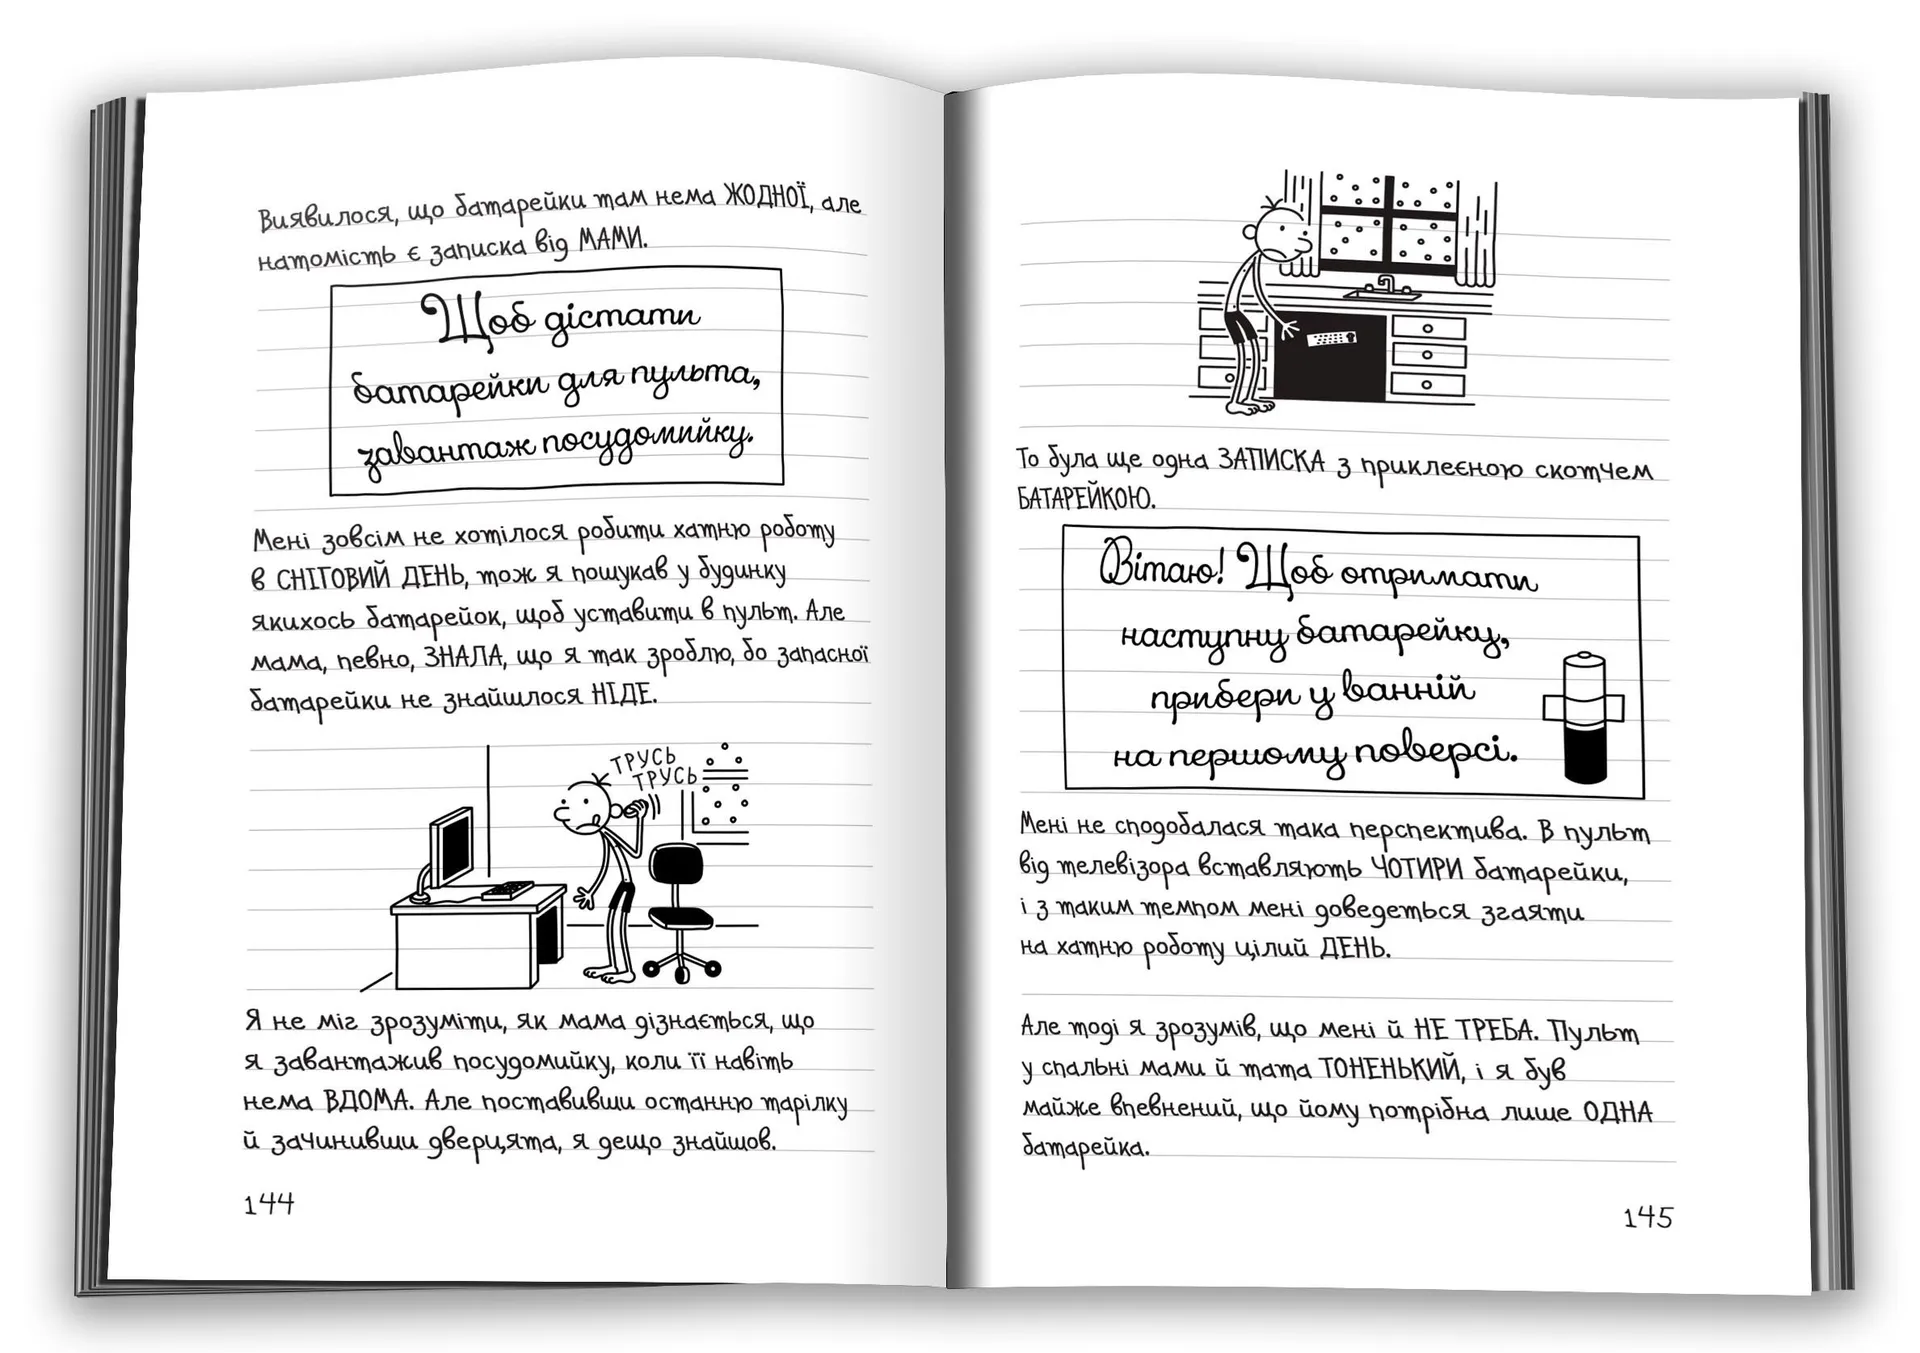 Виявилося, що батарейки там нема ЖОДНОЇ, але
натомість є записка від МАМИ.
Щоб дістати
батарейки для пульта,
завантаж посудомийку.
Мені зовсім не хотілося робити хатню роботу
в СНІГОВИЙ ДЕНЬ, тож я пошукав у будинку
якихось батарейок, щоб уставити в пульт. Але
мама, певно, ЗНАЛА, що я так зроблю, бо запасної
батарейки не знайшлося НІДЕ.
ТРУСЬ
ТРУСЬ
Я не міг зрозуміти, як мама дізнається, що
я завантажив посудомийку, коли її навіть
нема ВДОМА. Але поставивши останню тарілку
й зачинивши дверцята, я дещо знайшов.
144
То була ще одна ЗАПИСКА з приклеєною скотчем
БАТАРЕЙКОЮ.
Вітаю! Щоб отримати
наступну батарейку,
прибери у ванній
на першому поверсі.
Мені не сподобалася така перспектива. В пульт
від телевізора вставляють ЧОТИРИ батарейки,
і з таким темпом мені доведеться згаяти
на хатню роботу цілий ДЕНЬ.
Але тоді я зрозумів, що мені й НЕ ТРЕБА. Пульт
у спальні мами й тата ТОНЕНЬКИЙ, і я був
майже впевнений, що йому потрібна лише ОДНА
батарейка.
145